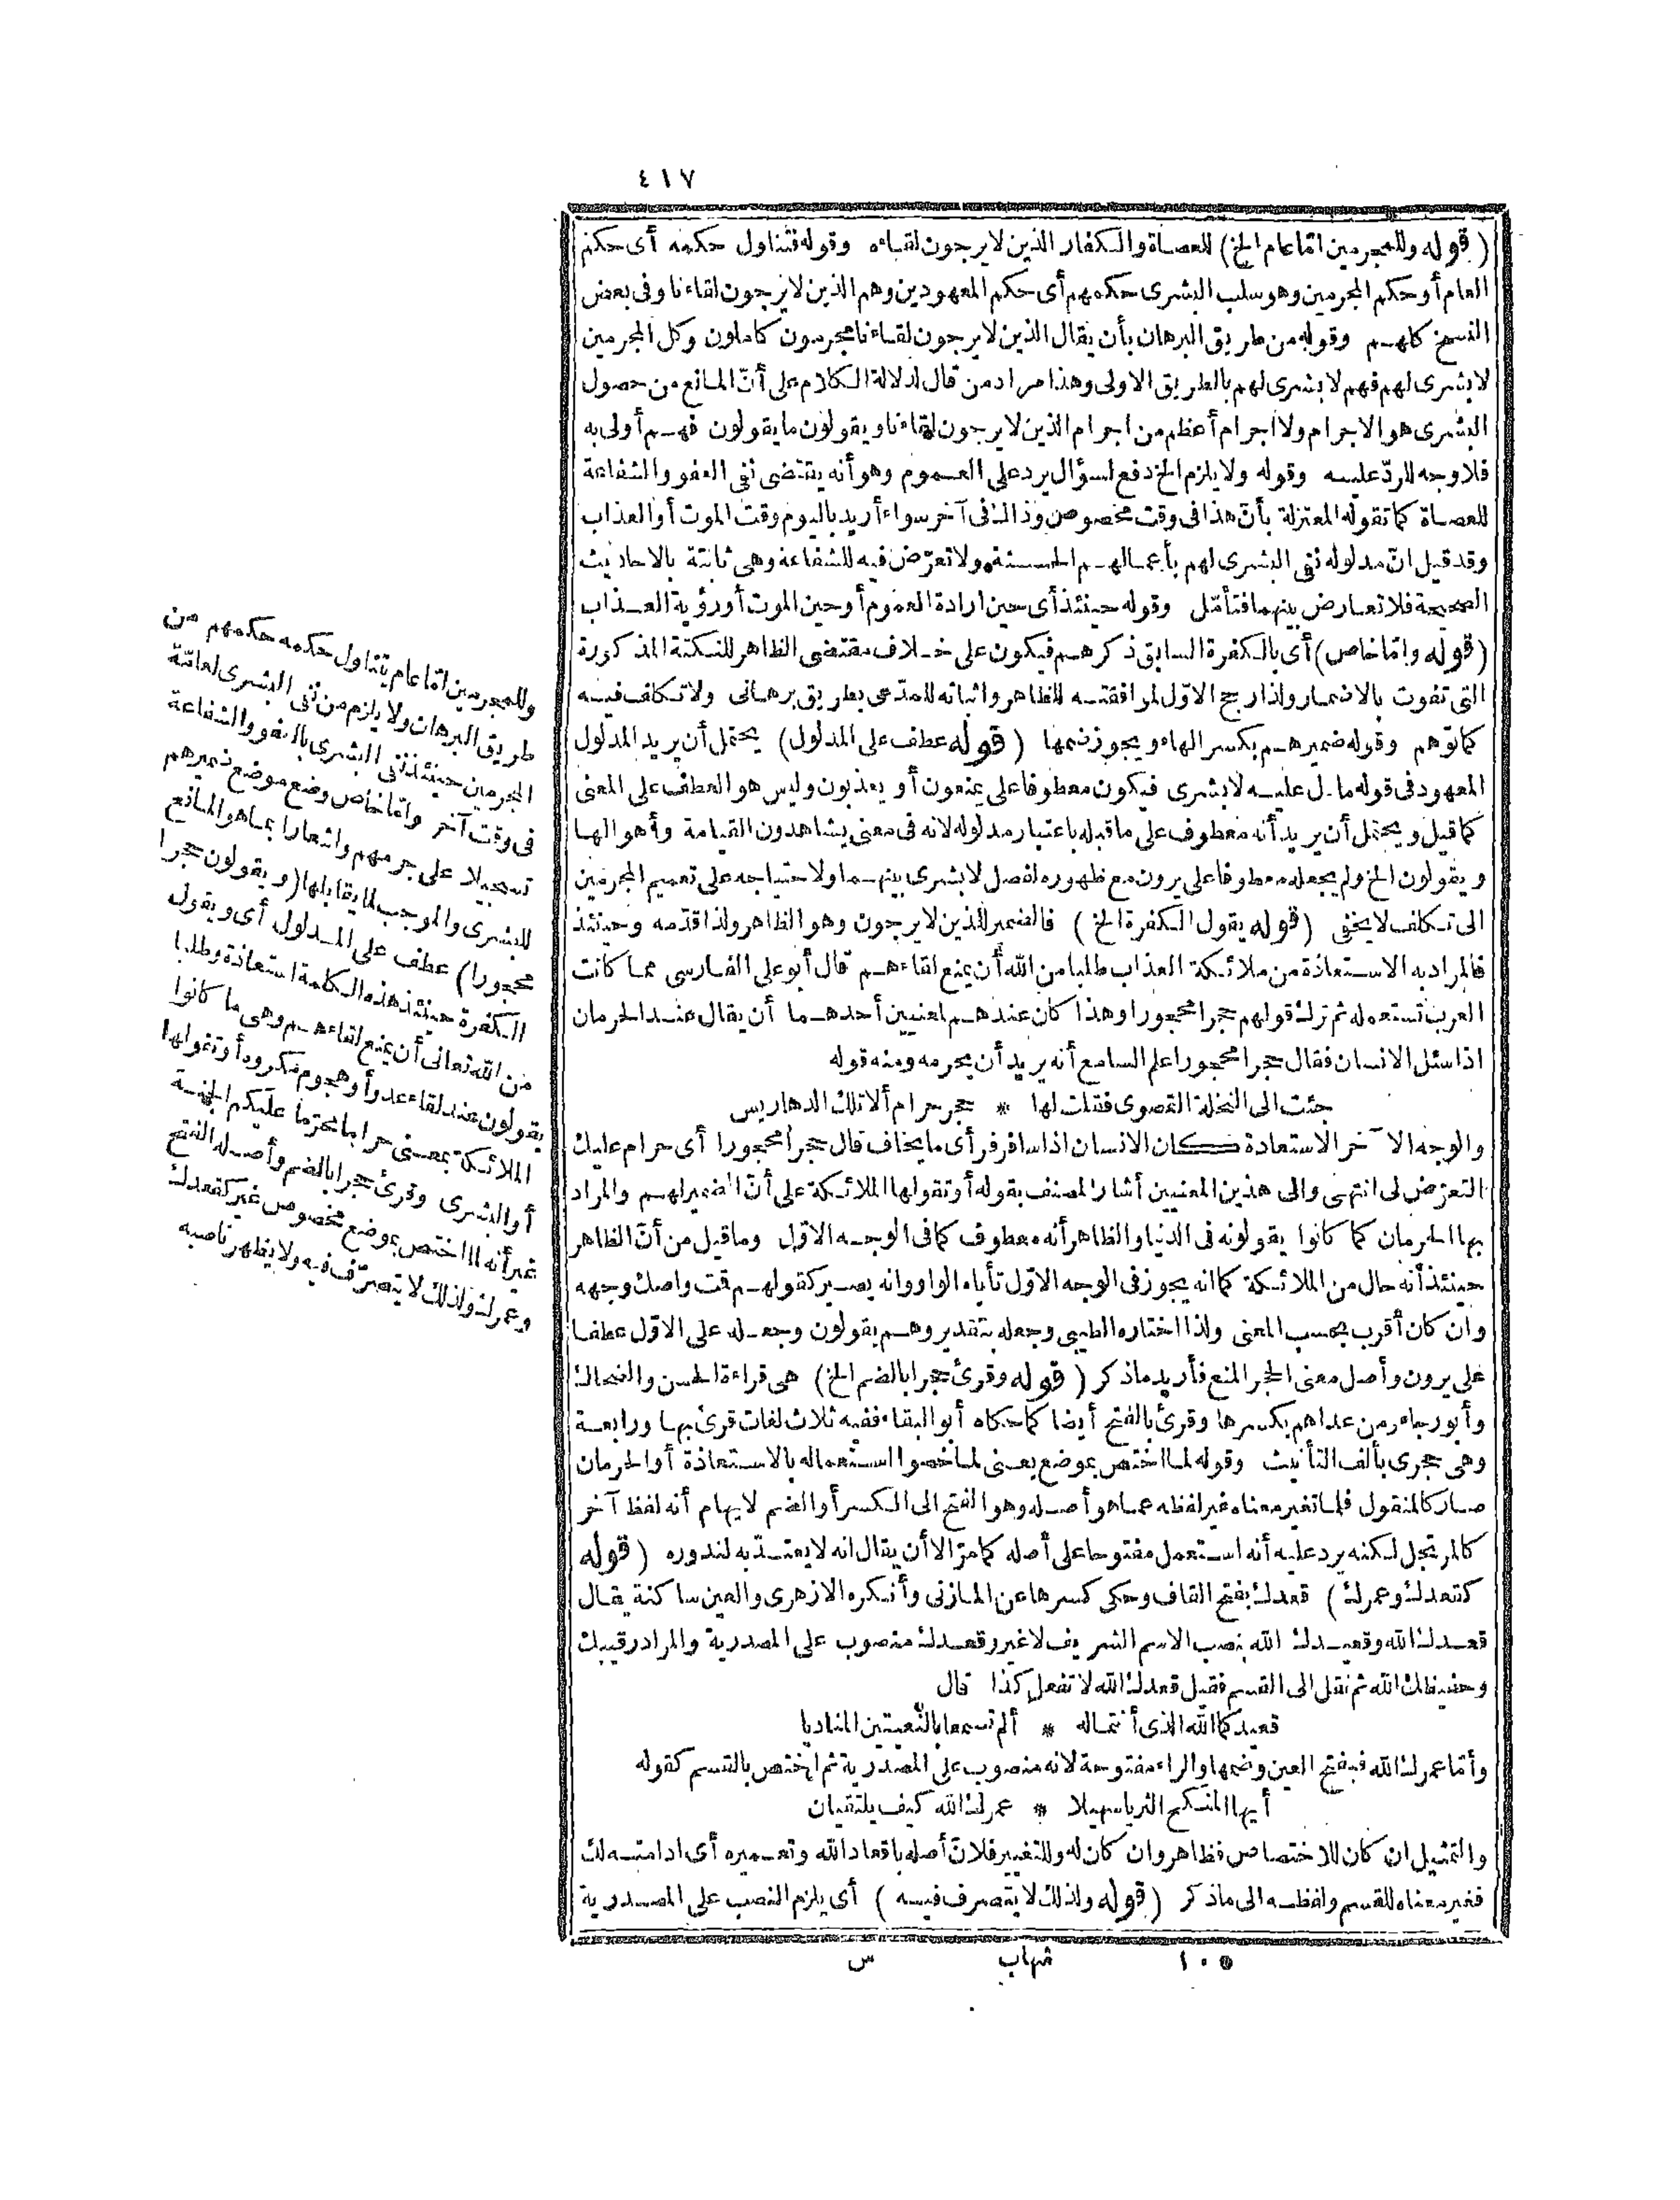 ٤١٧
(قوله وللمجرمين اتماعام الخ) للعصاة والكفار الذين لا يرجون لقاءه وقوله فتناول حكمه أى حكم
العام أو حكم المجرمين وهو سلب البشرى حكمهم أى حكم المعهودين وهم الذين لا يرجون لقاءنا وفى بعض
النسخ كلهم وقوله من طريق البرهان بأن يقال الذين لا يرجون لقاءنا مجرمون كاملون وكل المجرمين
لا بشرى لهم فهم لا بشرى لهم بالطريق الاولى وهذا مراد من قال لدلالة الكلام على أنّ المانع من حصول
البشرى هو الاجرام ولا اجرام أعظم من اجرام الذين لا يرجون لقاءنا ويقولون ما يقولون فهم أولى به
فلا وجه للردّ عليه وقوله ولا يلزم الخ دفع لسؤال يرد على العموم وهو أنه يقتضى نفى العفو والشفاعة
للعصاة كما تقوله المعتزلة بأنّ هذا فى وقت مخصوص وذاك فى آخر سواء أريد باليوم وقت الموت أو العذاب
وقد قيل انّ مدلوله نفى البشرى لهم بأعمالهم الحسنة ولا تعرّض فيه للشفاعة وهى ثابتة بالاحاديث
الصحيحة فلا تعارض بينهما فتأمّل وقوله حينئذ أى حين ارادة العموم أو حين الموت أو رؤية العذاب
(قوله واتما خاص) أى بالكفرة السابق ذكرهم فيكون على خلاف مقتضى الظاهر للنكتة المذكورة
التى تفوت بالاضمار ولذا رجح الاوّل لموافقته للظاهر واثباته للمدّعى بطريق برهانى ولا تكلف فيه
كما توّهم وقوله ضميرهم بكسر الهاء ويجوز ضمها (قوله عطف على المدلول) يحتمل أن يريد المدلول
المعهود فى قوله ما دل عليه لا بشرى فيكون معطوفا على يمنعون أو يعذبون وليس هو العطف على المعنى
كما قيل ويحتمل أن يريد أنه معطوف على ما قبله باعتبار مدلوله لانه فى معنى يشاهدون القيامة وأهوالها
ويقولون الخ ولم يجعله معطوفا على يرون مع ظهوره لفصل لا بشرى بينهما ولاحتياجه على تعميم المجرمين
الى تكلف لا يخفى (قوله يقول الكفرة الخ) فالضمير للذين لا يرجون وهو الظاهر ولذا قدّمه وحينئذ
فالمراد به الاستعاذة من ملائكة العذاب طلبا من الله أن يمنع لقاءهم قال أبو على الفارسى مما كانت
العرب تستعمله ثم ترك قولهم حجرا محجورا وهذا كان عندهم لمعنيين أحدهما أن يقال عند الحرمان
اذا سئل الانسان فقال حجرا محجورا علم السامع أنه يريد أن يحرمه ومنه قوله
حنت الى النخلة القصوى فقلت لها * حجر حرام ألا تلك الدهاريس
والوجه الآخر الاستعاذة كان الانسان اذا سافر فرأى ما يخاف قال حجرا محجورا أى حرام عليك
التعرّض لى انتهى والى هذين المعنيين أشار المصنف بقوله أو تقولها الملائكة على أنّ الضمير لهم والمراد
بها الحرمان كما كانوا يقولونه فى الدنيا والظاهر أنه معطوف كما فى الوجه الاوّل وما قيل من أنّ الظاهر
حينئذ أنه حال من الملائكة كما انه يجوز فى الوجه الاوّل تأباه الواو وانه يصير كقولهم قمت واصك وجهه
وان كان أقرب بحسب المعنى ولذا اختاره الطيبى وجعله بتقدير وهم يقولون وجعله على الاوّل عطفا
على يرون وأصل معنى الحجر المنع فأريد ماذكر (قوله وقرئ حجرا بالضم الخ) هى قراءة الحسن والضحاك
وأبو رجاء ومن عداهم بكسرها وقرئ بالفتح أيضا كما حكاه أبو البقاء ففيه ثلاث لغات قرئ بها ورابعة
وهى حجرى بألف التأنيث وقوله لما اختص بموضع يعنى لما خصوا استعماله بالاستعاذة أو الحرمان
صار كالمنقول فلما تغير معناه غير لفظه عما هو أصله وهو الفتح الى الكسر أو الضم لايهام أنه لفظ آخر
كالمرتجل لكنه يرد عليه أنه استعمل مفتوحا على أصله كما مرّ الا أن يقال انه لا يعتدّ به لندوره (قوله
كقعدك وعمرك) قعدك بفتح القاف وحكى كسرها عن المازنى وأنكره الازهرى والعين ساكنة يقال
قعدك الله وقعيدك الله بنصب الاسم الشريف لا غير وقعدك منصوب على المصدرية والمراد رقيبك
وحفيظك الله ثم نقل الى القسم فقيل قعدك الله لا تفعل كذا قال
قعيدكما الله الذى أنتماله * ألم تسمعا بالنعيتين المناديا
وأمّا عمرك الله فبفتح العين وضمها والراء مفتوحة لانه منصوب على المصدرية ثم اختص بالقسم كقوله
أيها المنكح الثريا سهيلا * عمرك الله كيف يلتقيان
والتمثيل ان كان للاختصاص فظاهر وان كان له وللتغيير فلانّ أصله باقعاد الله وتعميره أى ادامته لك
فغير معناه للقسم ولفظه الى ماذكر (قوله ولذلك لا يتصرف فيه) أى يلزم النصب على المصدرية
١٠٥ شهاب س
وللمجرمين اتماعام يتناول حكمه حكمهم من
طريق البرهان ولا يلزم من نفى البشرى لعامّة
المجرمين حينئذ نفى البشرى بالعفو والشفاعة
فى وقت آخر واتما خاص وضع موضع ضميرهم
تسجيلا على جرمهم واشعارا بما هو المانع
للبشرى والموجب لما يقابلها (ويقولون حجرا
محجورا) عطف على المدلول أى ويقول
الكفرة حينئذ هذه الكلمة استعاذة وطلبا
من الله تعالى أن يمنع لقاءهم وهى ما كانوا
يقولون عند لقاء عدو أو هجوم مكروه أو تقولها
الملائكة بمعنى حراما محرّما عليكم الجنة
أو البشرى وقرئ حجرا بالضم وأصله الفتح
غير أنه لما اختص بموضع مخصوص غير كقعدك
وعمرك ولذلك لا يتصرّف فيه ولا يظهر ناصبه